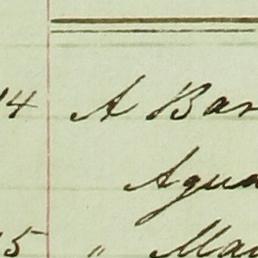 14 A Bar
Agua
15 " Mau